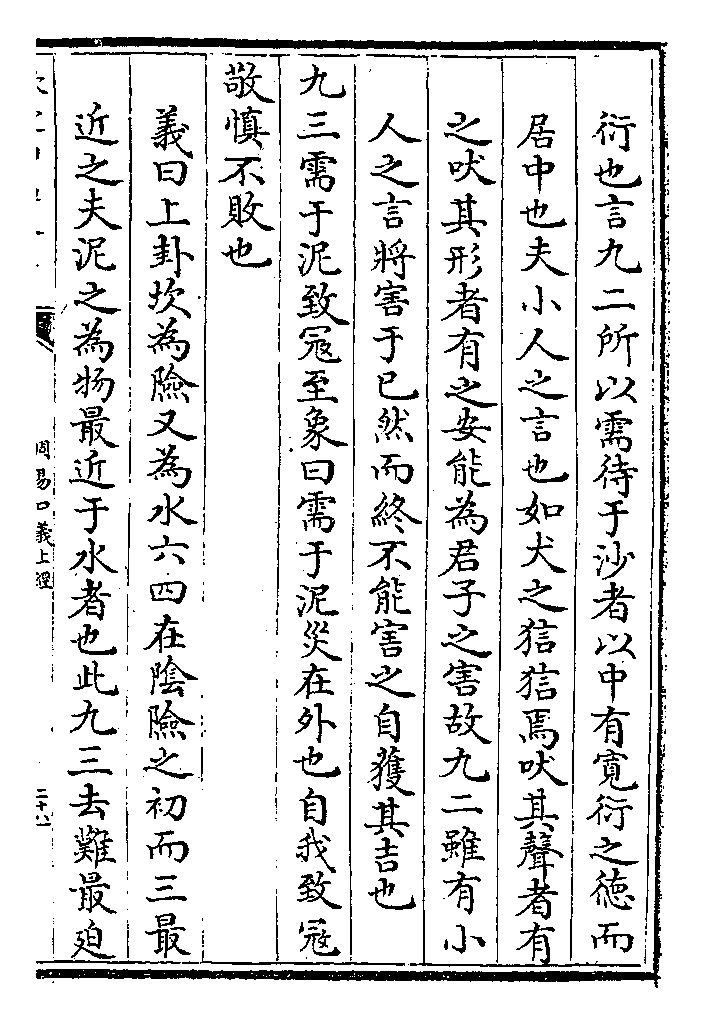 衍也言九二所以需待于沙者以中有寛衍之徳而
居中也夫小人之言也如犬之狺狺焉吠其聲者有
之吠其形者有之安能為君子之害故九二雖有小
人之言將害于已然而終不能害之自獲其吉也
九三需于泥致寇至象曰需于泥災在外也自我致寇
敬慎不敗也
義曰上卦坎為險又為水六四在陰險之初而三最
近之夫泥之為物最近于水者也此九三去難最廹
周易口義上經
二十八